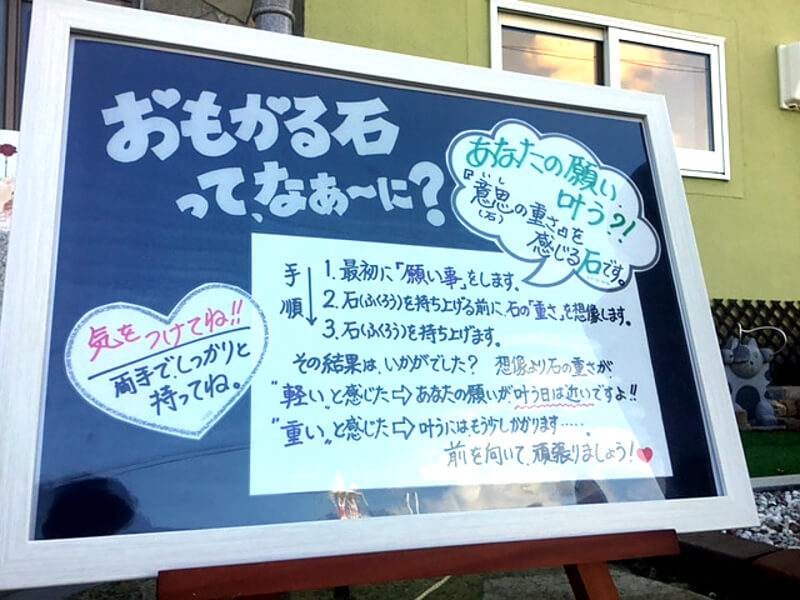 おもかる石
って、なぁ〜に?
あなたの願い、
叶う?!
『いし
意思の重さ』を
(石)
感じる石です。
手順
1.最初に「願い事」をします。
2.石(ふくろう)を持ち上げる前に、石の「重さ」を想像します。
3.石(ふくろう)を持ち上げます。
その結果は、いかがでした? 想像より石の重さが、
"軽い"と感じた⇨あなたの願いが叶う日は近いですよ!!
"重い"と感じた⇨叶うには、もう少しかかります・・・・・。
前を向いて、頑張りましょう!♥
気をつけてね!!
両手で、しっかりと
持ってね。